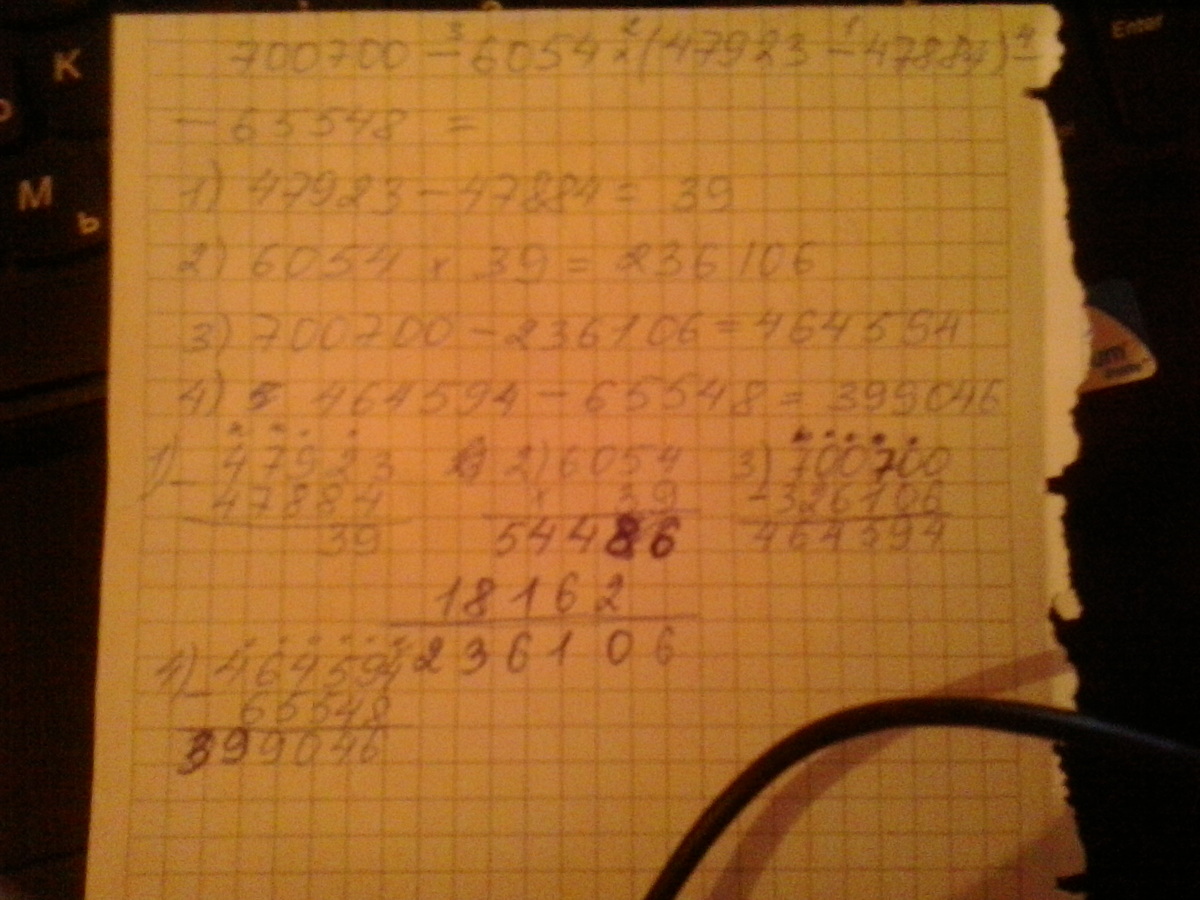 700700 - 6054 × (47923 - 47884) -
- 65548 =
1) 47923 - 47884 = 39
2) 6054 × 39 = 236106
3) 700700 - 236106 = 464554
4) 464594 - 65548 = 399046
1) - 47923
47884
39
2) 6054
× 39
54486
18162
236106
3) 700700
- 326106
464594
4) - 464594
65548
399046
Enter
K
M
Ь
um